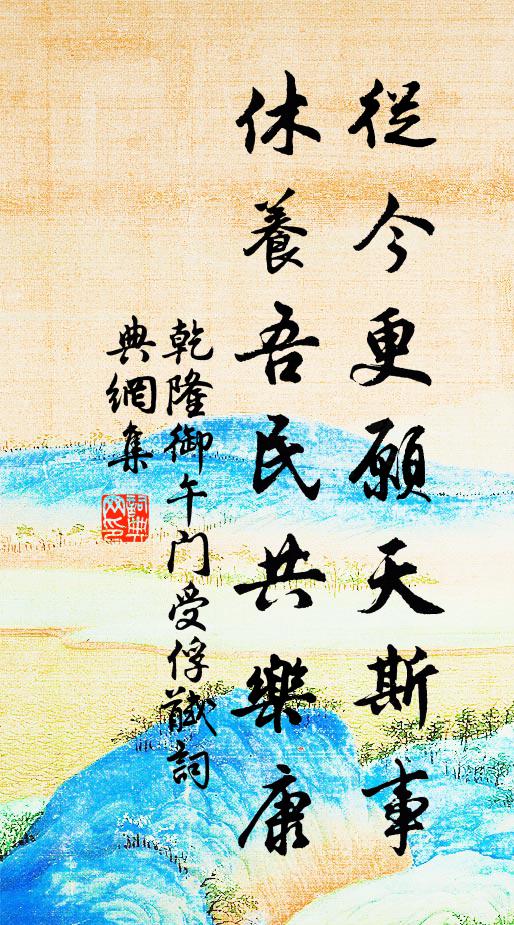 從今更願天斯事
休養吾民共樂康
乾隆御午门受俘馘詞
典網集
詞典